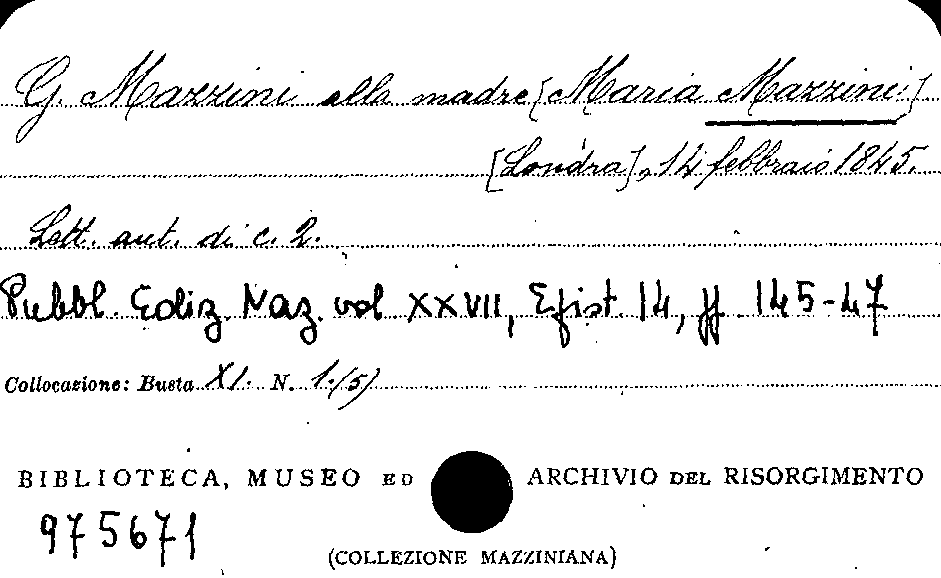 G. Mazzini alla madre [Maria Mazzini]
[Londra], 14 febbraio 1845.
Lett. aut. di c. 2.
Pubbl. Ediz. Naz. vol XXVII, Epist. 14, pp. 145-47
Collocazione: Busta XI. N. 1.(5)
BIBLIOTECA, MUSEO ED ARCHIVIO DEL RISORGIMENTO
975671
(COLLEZIONE MAZZINIANA)